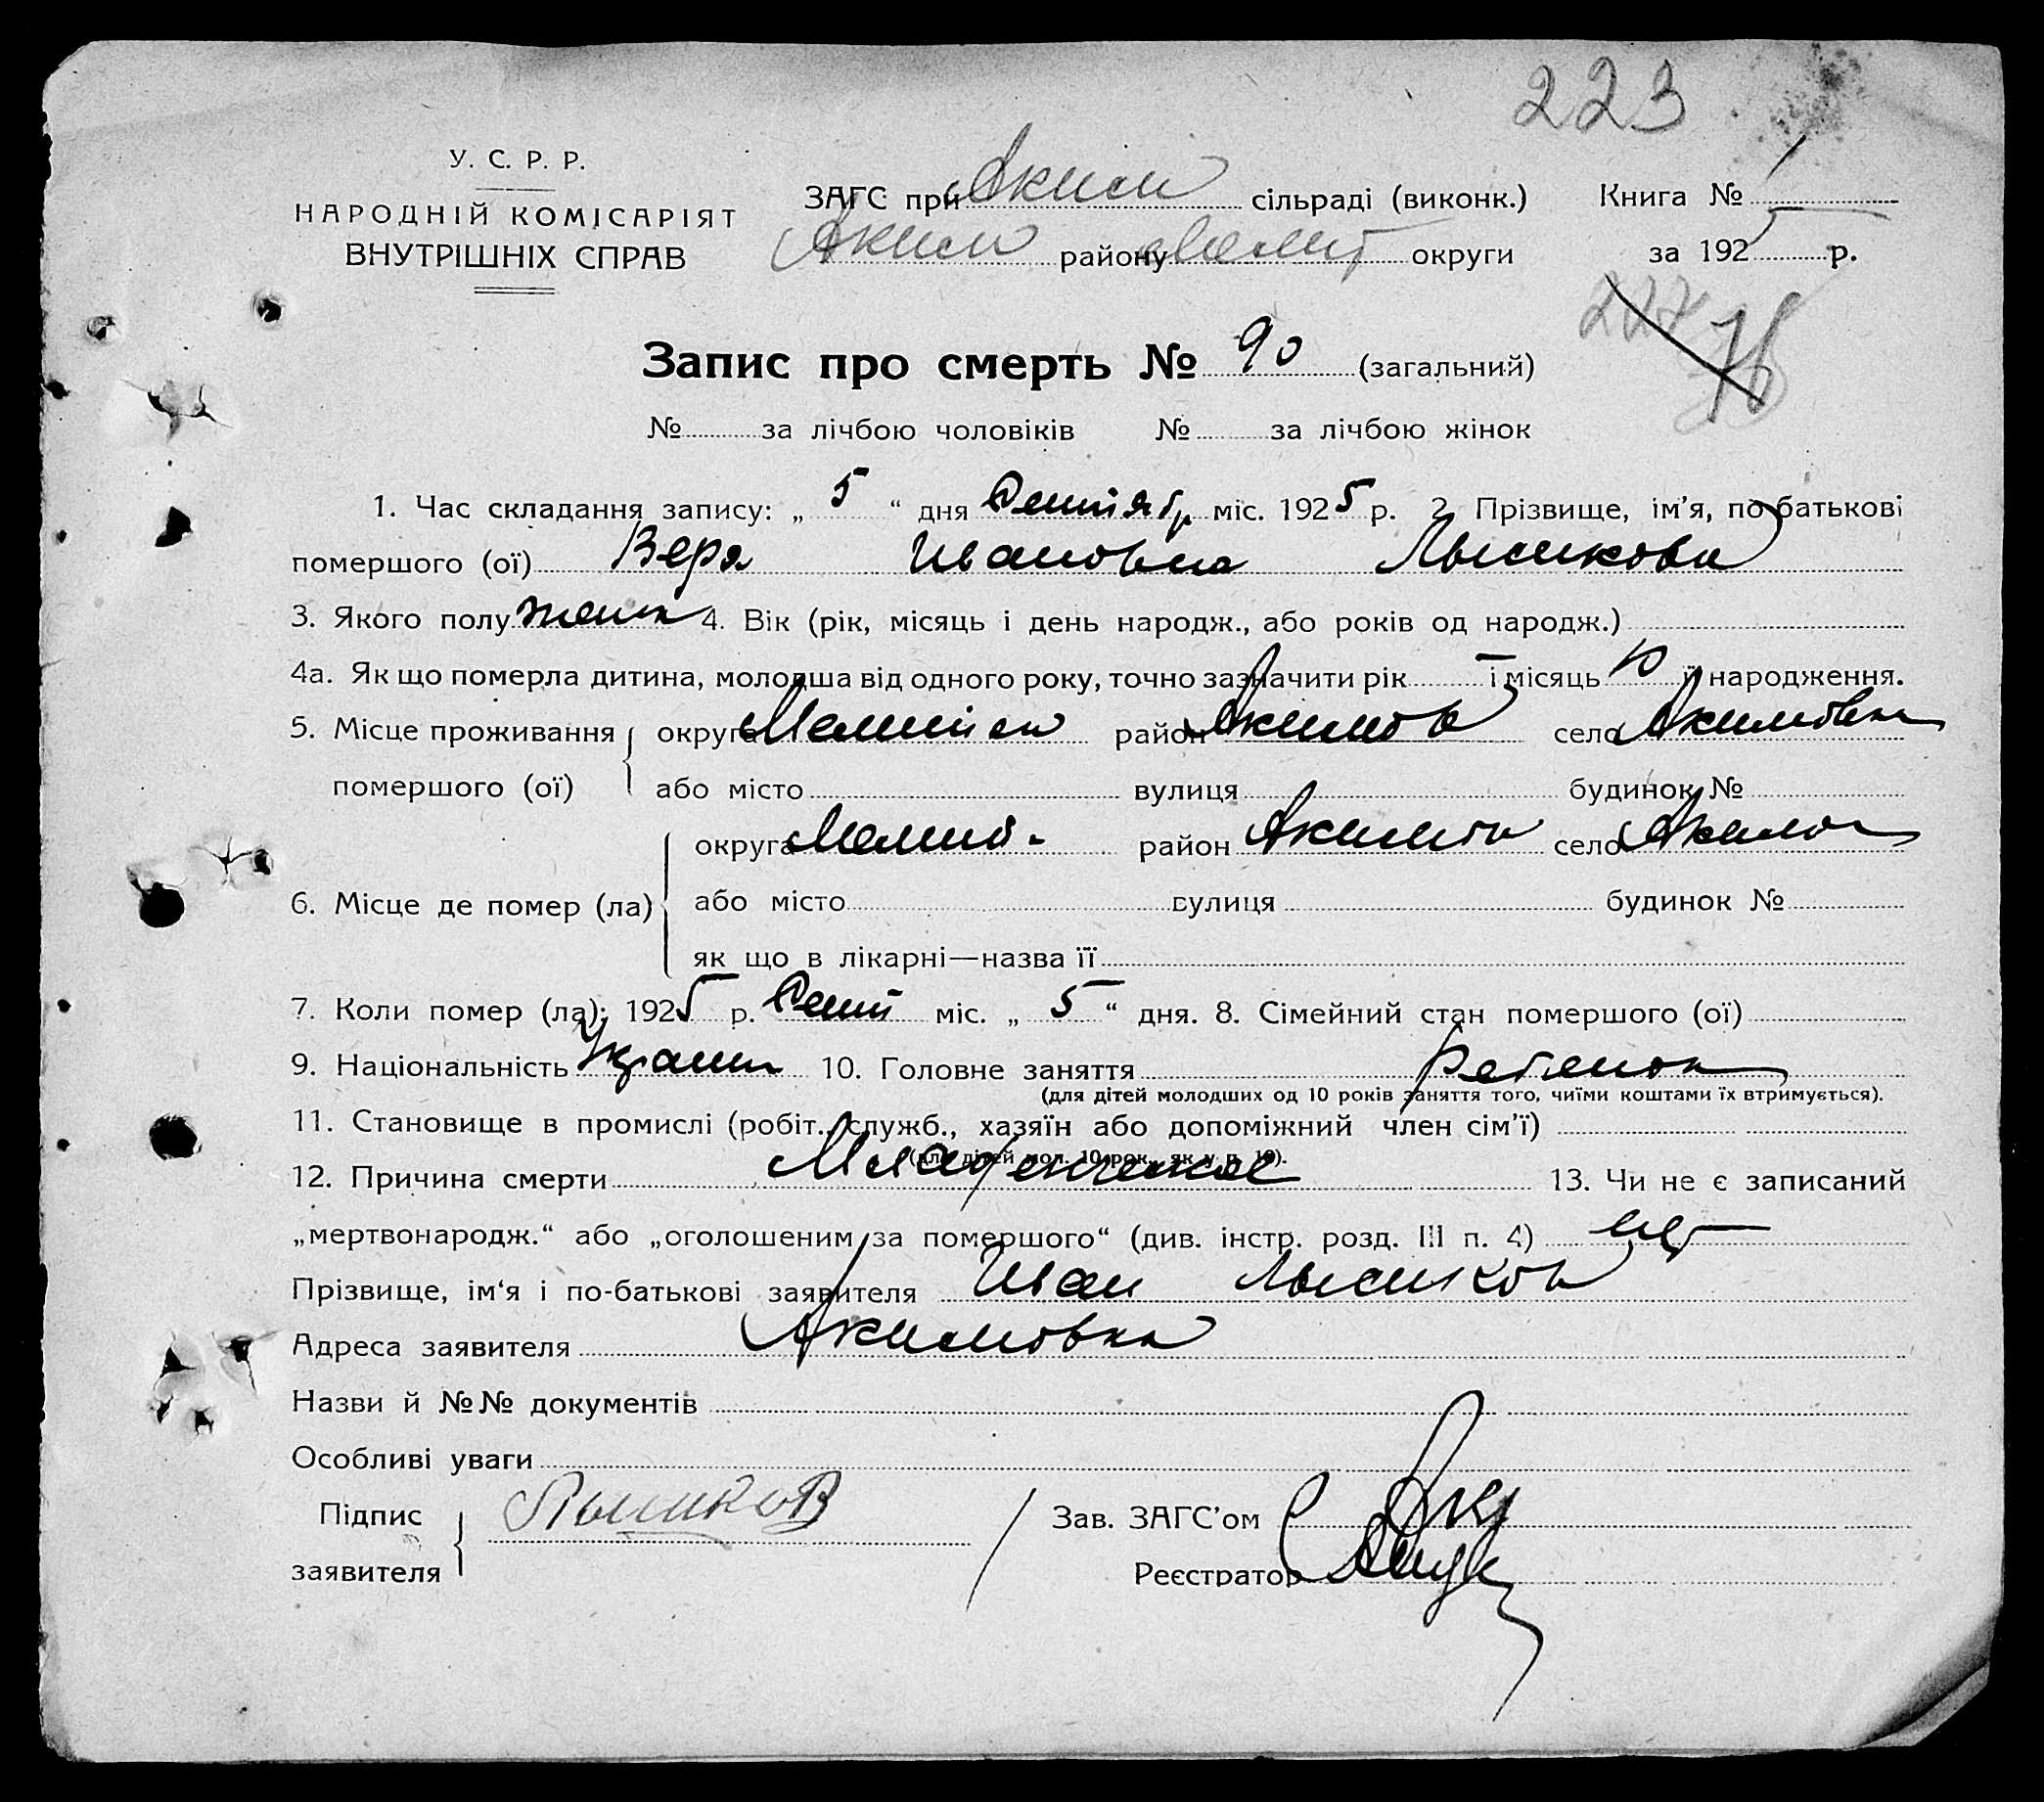 223
У. С. Р. Р.
НАРОДНІЙ КОМІСАРІЯТ
ВНУТРІШНІХ СПРАВ
ЗАГС при Аким сільраді (виконк.)
Аким району Мелит округи
Книга № 1
за 1925 р.
227
Запис про смерть № 90 (загальний)
№ за лічбою чоловіків № за лічбою жінок
1. Час складання запису: „ 5 “ дня Сентябр міс. 1925 р. 2. Прізвище, ім’я, по батькові
помершого (ої) Вера Ивановна Лысикова
3. Якого полу женск 4. Вік (рік, місяць і день народж., або років од народж.)
4а. Як що померла дитина, молодша від одного року, точно зазначити рік – і місяць 10 її народження.
5. Місце проживання округа Мелитоп район Акимов село Акимовка
помершого (ої) або місто вулиця будинок №
округа Мелит. район Акимов село Акимов
6. Місце де помер (ла) або місто вулиця будинок №
як що в лікарні—назва її
7. Коли помер (ла): 1925 р. Сент міс. „ 5 “ дня. 8. Сімейний стан помершого (ої)
9. Національність Украин 10. Головне заняття Ребенок
(для дітей молодших од 10 років заняття того, чиїми коштами їх втримується).
11. Становище в промислі (робіт., служб., хазяїн або допоміжний член сім’ї)
(для дітей мол. 10 рок. як у п. 10).
12. Причина смерти Младенческая 13. Чи не є записаний
„мертвонародж.“ або „оголошеним за помершого“ (див. інстр. розд. III п. 4) нет
Прізвище, ім‘я і по-батькові заявителя Иван Лысиков
Адреса заявителя Акимовка
Назви й №№ документів
Особливі уваги
Підпис
заявителя
Лысиков
Зав. ЗАГС’ом
Реєстратор